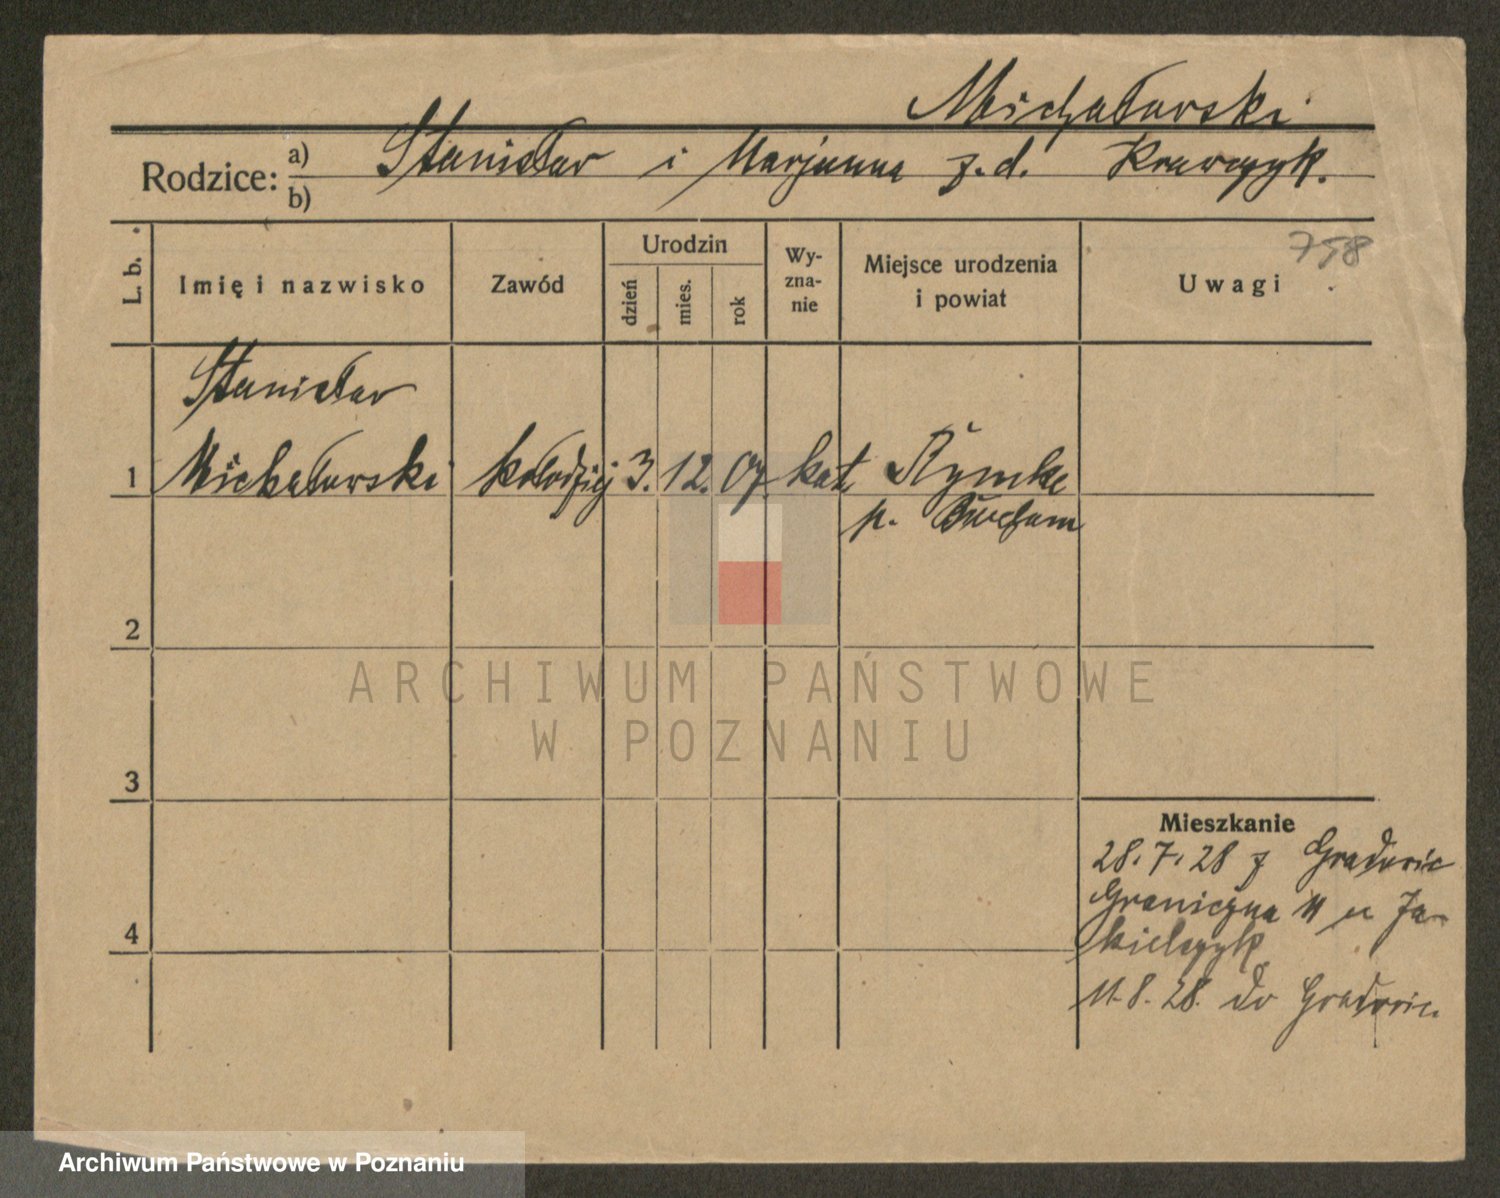 Michałowski
Rodzice: a) Stanisław i Marjanna z. d. Krawczyk.
b)
758
L. b.
Imię i nazwisko
Zawód
Urodzin
dzień
mies.
rok
Wy-
zna-
nie
Miejsce urodzenia
i powiat
Uwagi
Stanisław
1 Michałowski kołodziej 3. 12. 07 kat.
p.
2
3
4
Mieszkanie
28. 7. 28 z Gradowic
Graniczna 11 u Ja-
kielczyk
11. 8. 28. do Gradowic
ARCHIWUM PAŃSTWOWE
W POZNANIU
Archiwum Państwowe w Poznaniu